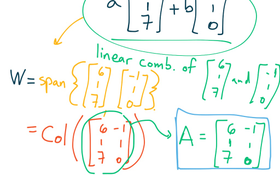 a [6 1 7] + b [-1 1 0]
linear comb. of [6 1 7] and [-1 1 0]
W = span { [6 1 7] [-1 1 0] }
= Col ( [6 -1 1 1 7 0] ) → A = [6 -1 1 1 7 0]